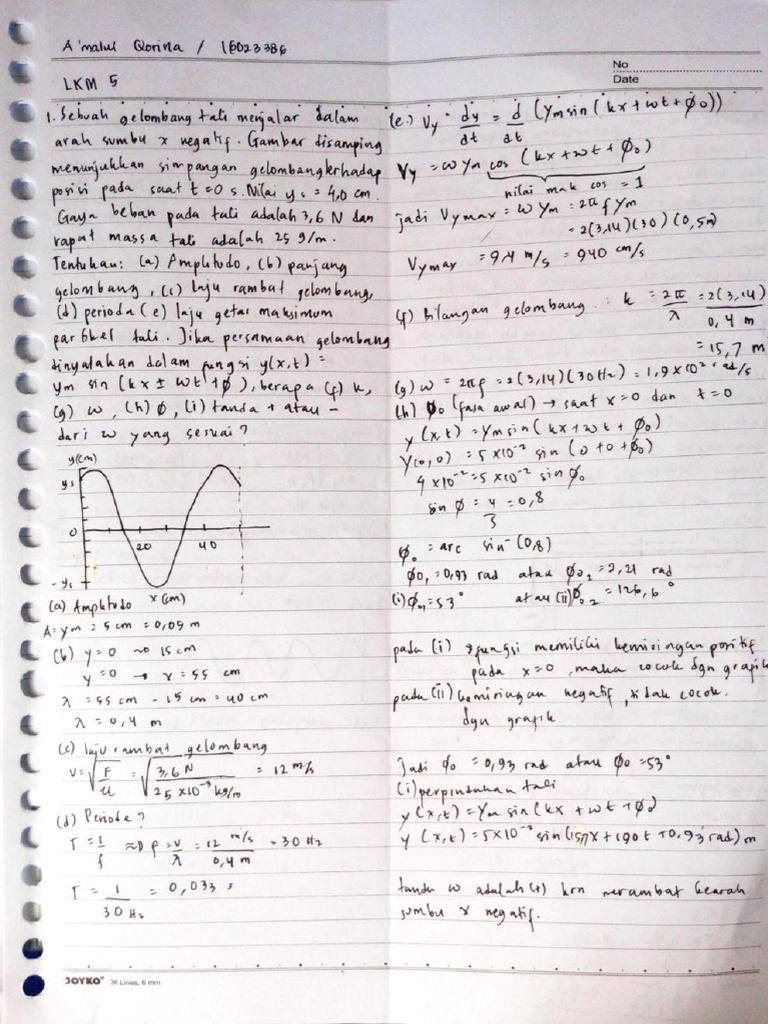 A'malul Qorina / 18023386
No
Date
LKM 5
1. Sebuah gelombang tali menjalar dalam
arah sumbu x negatif. Gambar disamping
menunjukkan simpangan gelombang terhadap
posisi pada saat t = 0 s. Nilai ys = 4,0 cm.
Gaya beban pada tali adalah 3,6 N dan
rapat massa tali adalah 25 g/m.
Tentukan: (a) Amplitudo, (b) panjang
gelombang, (c) laju rambat gelombang,
(d) perioda (e) laju getar maksimum
partikel tali. Jika persamaan gelombang
dinyatakan dalam fungsi y(x,t) =
ym sin (kx ± wt + ϕ), berapa (f) k,
(g) w, (h) ϕ, (i) tanda + atau -
dari w yang sesuai?
y(cm)
ys
0
20
40
-ys
x (cm)
(a) Amplitudo
A = ym = 5 cm = 0,05 m
(b) y=0 ~> 15 cm
y=0 → x = 55 cm
λ = 55 cm - 15 cm = 40 cm
λ = 0,4 m
(c) laju rambat gelombang
V = √F/μ = √3,6 N / 25 x 10⁻³ kg/m = 12 m/s
(d) Perioda?
T = 1/f ≈> f = v/λ = 12 m/s / 0,4 m = 30 Hz
T = 1 / 30 Hz = 0,033 s
(e.) Vy = dy/dt = d/dt (ym sin (kx + wt + ϕ0))
Vy = w ym cos (kx + wt + ϕ0)
nilai mak cos = 1
jadi Vymax = w ym = 2π f ym
= 2(3,14)(30)(0,5m)
Vymax = 9,4 m/s = 940 cm/s
(f) bilangan gelombang : k = 2π/λ = 2(3,14) / 0,4 m
= 15,7 m
(g) w = 2πf = 2(3,14)(30Hz) = 1,9 x 10² rad/s
(h) ϕ0 (fasa awal) → saat x=0 dan t=0
y(x,t) = ym sin (kx + wt + ϕ0)
y(0,0) = 5 x 10⁻² sin (0 + 0 + ϕ0)
4 x 10⁻² = 5 x 10⁻² sin ϕ0
sin ϕ = 4/5 = 0,8
ϕ0 = arc sin⁻ (0,8)
ϕ01 = 0,93 rad atau ϕ02 = 2,21 rad
(i) ϕ01 = 53° atau (ii) ϕ02 = 126,6°
pada (i) fungsi memiliki kemiringan positif
pada x=0, maka cocok dgn grafik
pada (ii) kemiringan negatif, tidak cocok
dgn grafik
Jadi ϕ0 = 0,93 rad atau ϕ0 = 53°
(i) perpindahan tali
y(x,t) = ym sin (kx + wt + ϕ)
y(x,t) = 5x10⁻² sin (15,7x + 190t + 0,93 rad) m
tanda w adalah (+) krn merambat kearah
sumbu x negatif.
JOYKO 36 Lines, 6 mm